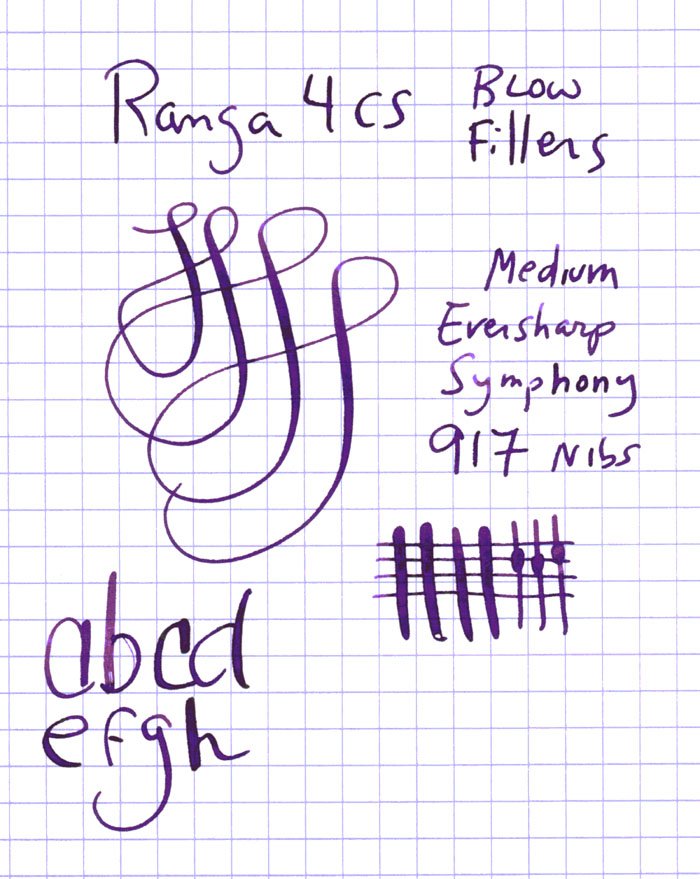 Ranga 4 CS
Blow
Fillers
Medium
Eversharp
Symphony
917 Nibs
abcd
efgh